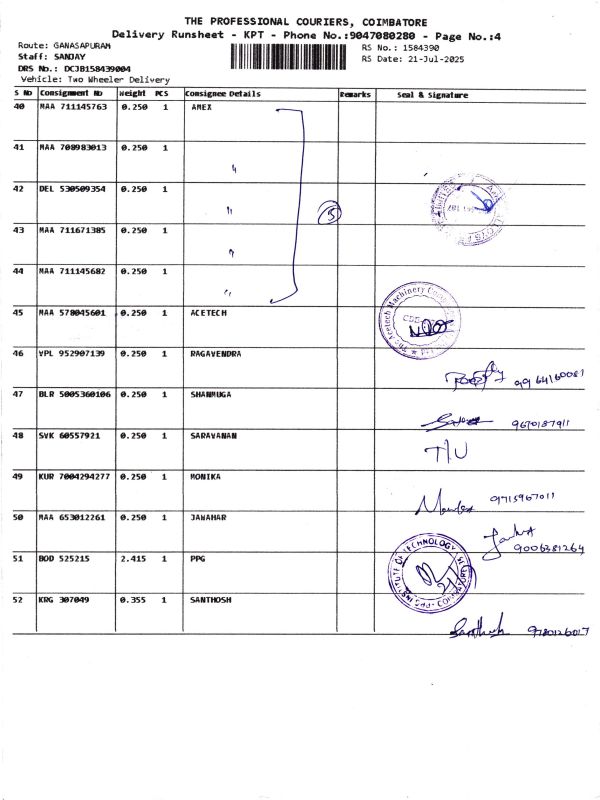 THE PROFESSIONAL COURIERS, COIMBATORE
Delivery Runsheet - KPT - Phone No.:9047080280 - Page No.:4
Route: GANASAPURAM
Staff: SANJAY
DRS No.: DCJB158439004
Vehicle: Two Wheeler Delivery
RS No.: 1584390
RS Date: 21-Jul-2025
S No Consignment No Weight PCS Consignee Details Remarks Seal & Signature
40 MAA 711145763 0.250 1 AMEX
41 MAA 708983013 0.250 1 "
42 DEL 530509354 0.250 1 "
43 MAA 711671385 0.250 1 "
44 MAA 711145682 0.250 1 "
5
45 MAA 578045601 0.250 1 ACETECH
The Acetech Machinery
46 VPL 952907139 0.250 1 RAGAVENDRA
9964160081
47 BLR 5005360106 0.250 1 SHANMUGA
9670187911
48 SVK 60557921 0.250 1 SARAVANAN
T/U
49 KUR 7004294277 0.250 1 MONIKA
9715967011
50 MAA 653012261 0.250 1 JAWAHAR
9006381264
51 BOD 525215 2.415 1 PPG
INSTITUTE OF TECHNOLOGY
52 KRG 307049 0.355 1 SANTHOSH
Santhosh 9780126017